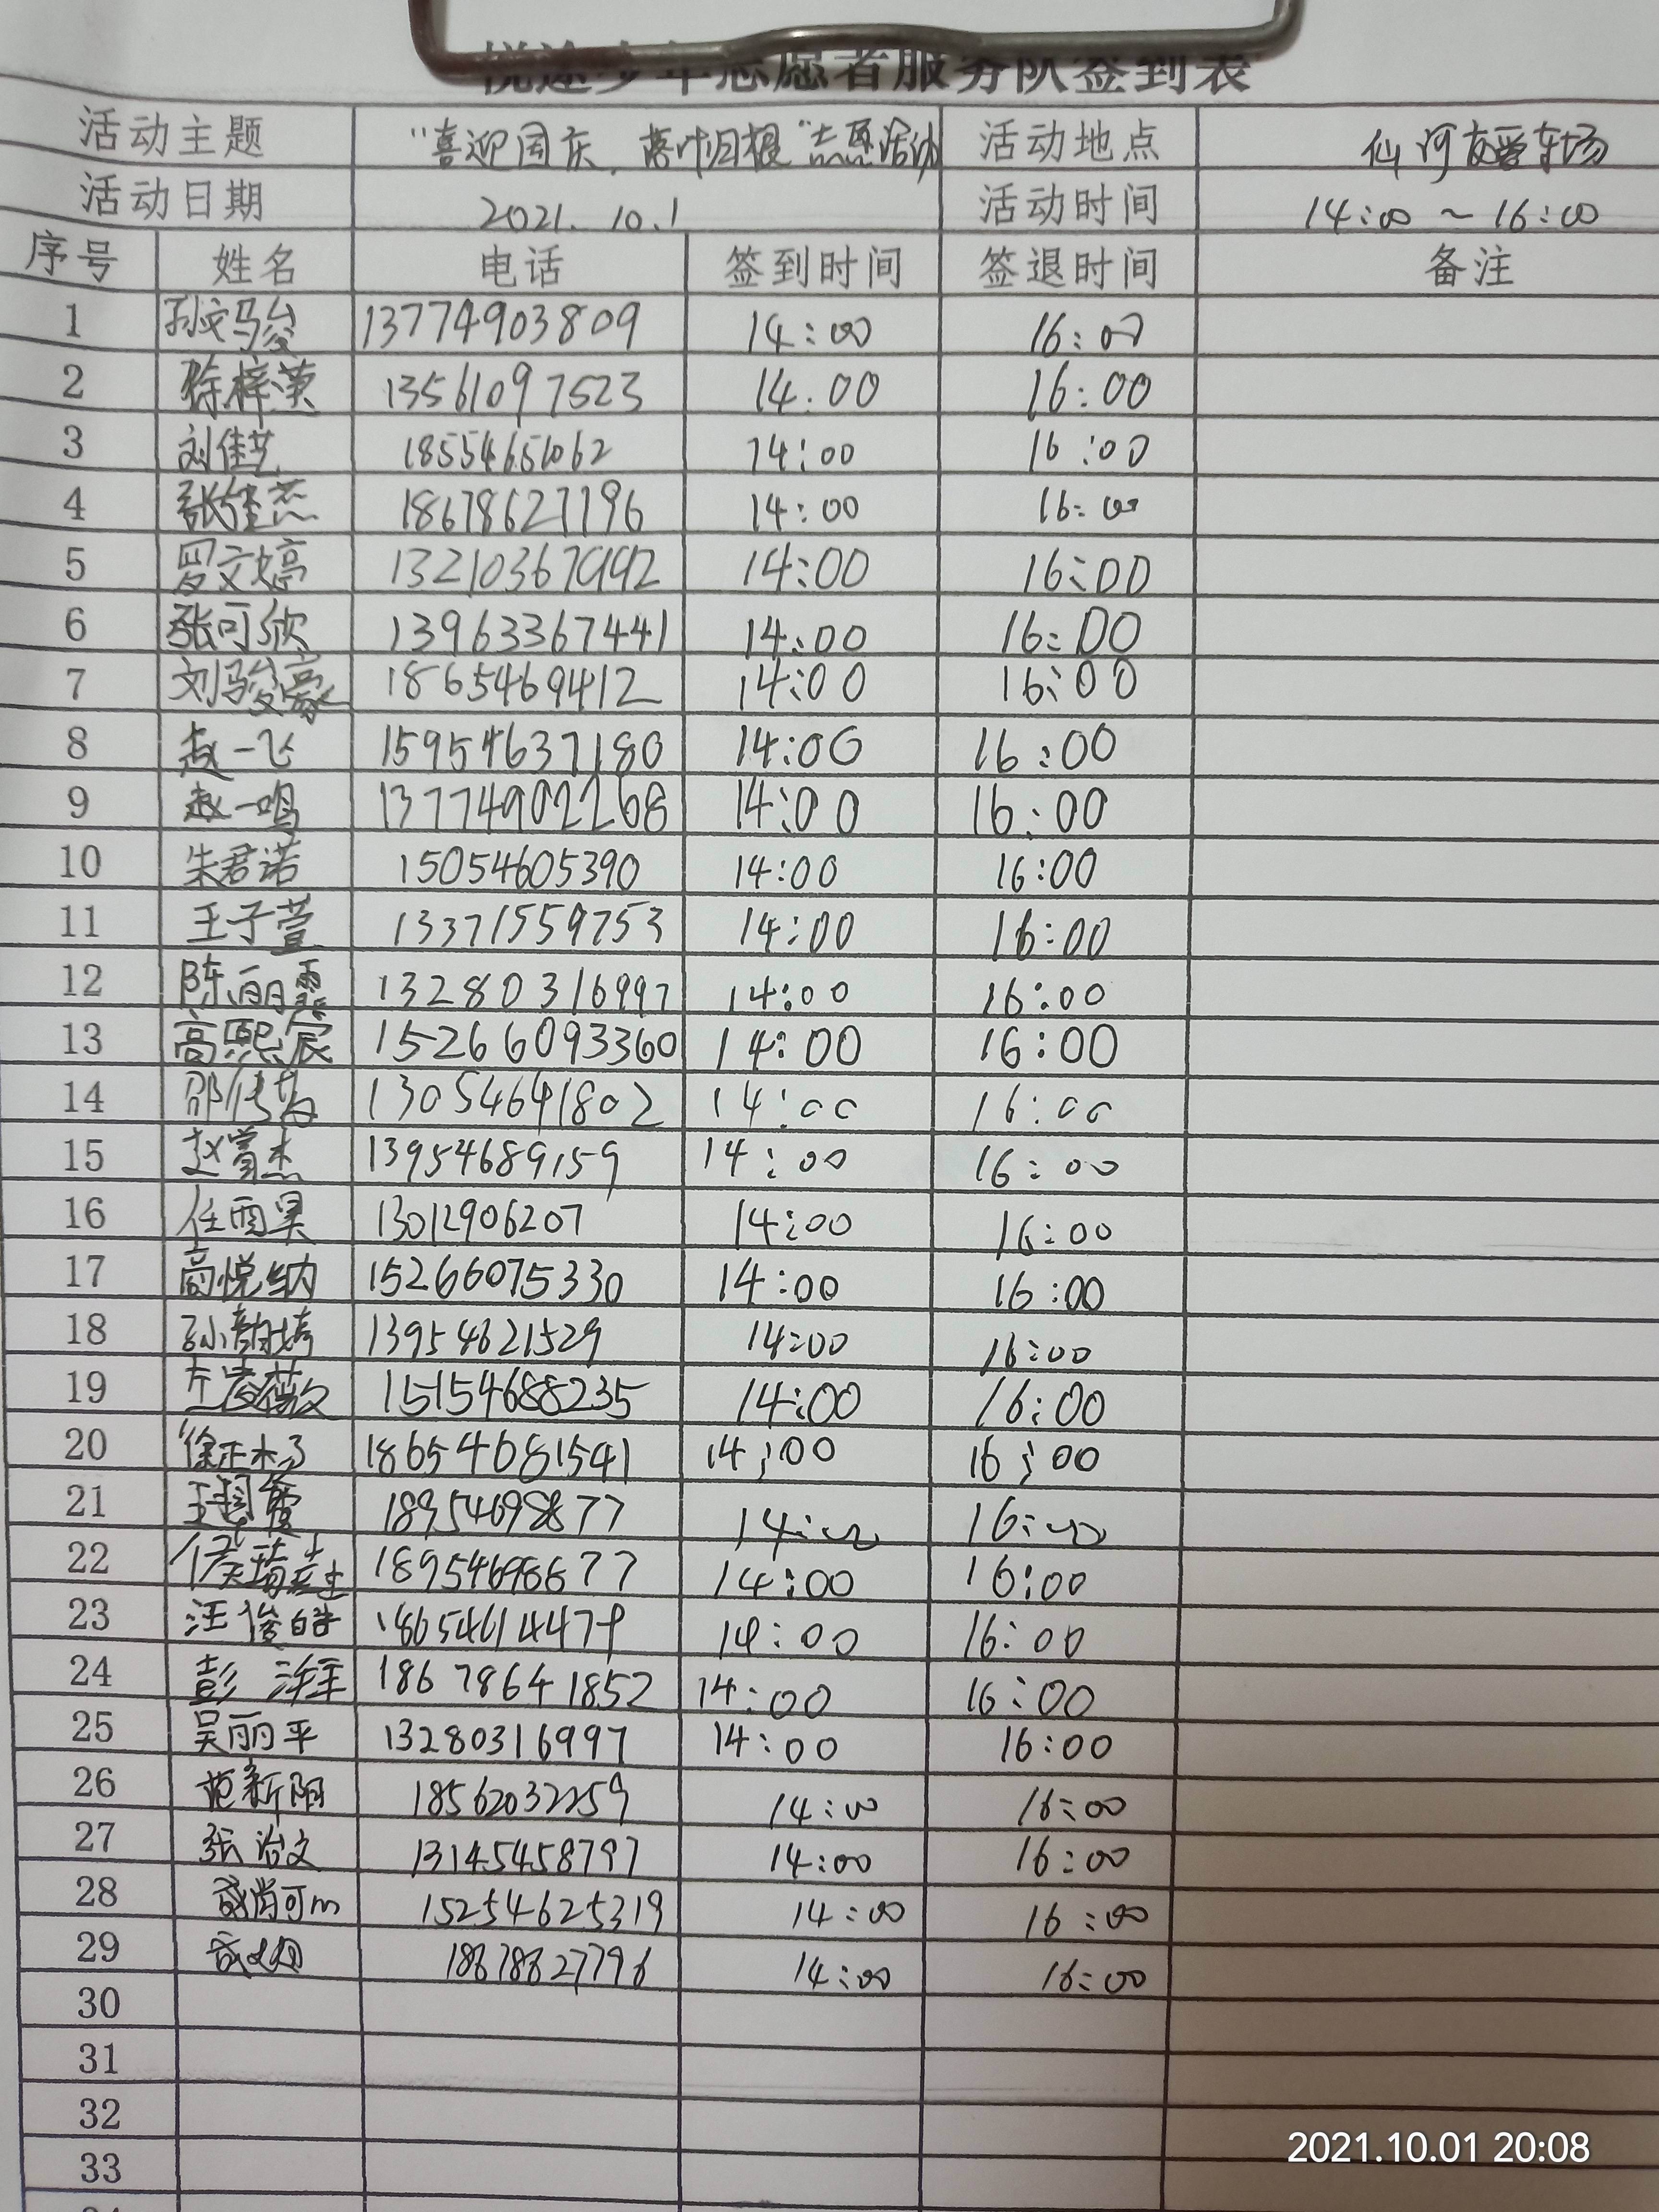 悦途少年志愿者服务队签到表
活动主题 "喜迎国庆，落叶归根"志愿活动 活动地点 仙河友爱车场
活动日期 2021.10.1 活动时间 14:00～16:00
序号 姓名 电话 签到时间 签退时间 备注
1 孙文骏 13774903809 14:00 16:00
2 徐梓漠 13561097523 14.00 16:00
3 刘佳艺 18554651062 14:00 16:00
4 14:00 16:00
5 罗文婷 14:00 16:00
6 张可欣 13963367441 14:00 16:00
7 刘骏豪 1865469412 14:00 16:00
8 赵一飞 15954637180 14:00 16:00
9 赵一鸣 13774902268 14:00 16:00
10 朱君诺 15054605390 14:00 16:00
11 王子萱 13371559753 14:00 16:00
12 陈丽霞 13280316997 14:00 16:00
13 高熙宸 15266093360 14:00 16:00
14 13054641802 14:00 16:00
15 13954689159 14:00 16:00
16 任雨昊 13012906207 14:00 16:00
17 高悦纳 15266075330 14:00 16:00
18 孙韵琦 13954621529 14:00 16:00
19 15154688235 14:00 16:00
20 18654681541 14:00 16:00
21 18954698877 14:00 16:00
22 14:00 16:00
23 汪俊皓 14:00 16:00
24 彭 18678641852 14:00 16:00
25 吴丽平 13280316997 14:00 16:00
26 范新阳 18562032259 14:00 16:00
27 张治文 13145458797 14:00 16:00
28 15254625319 14:00 16:00
29 14:00 16:00
30
31
32
33
2021.10.01 20:08